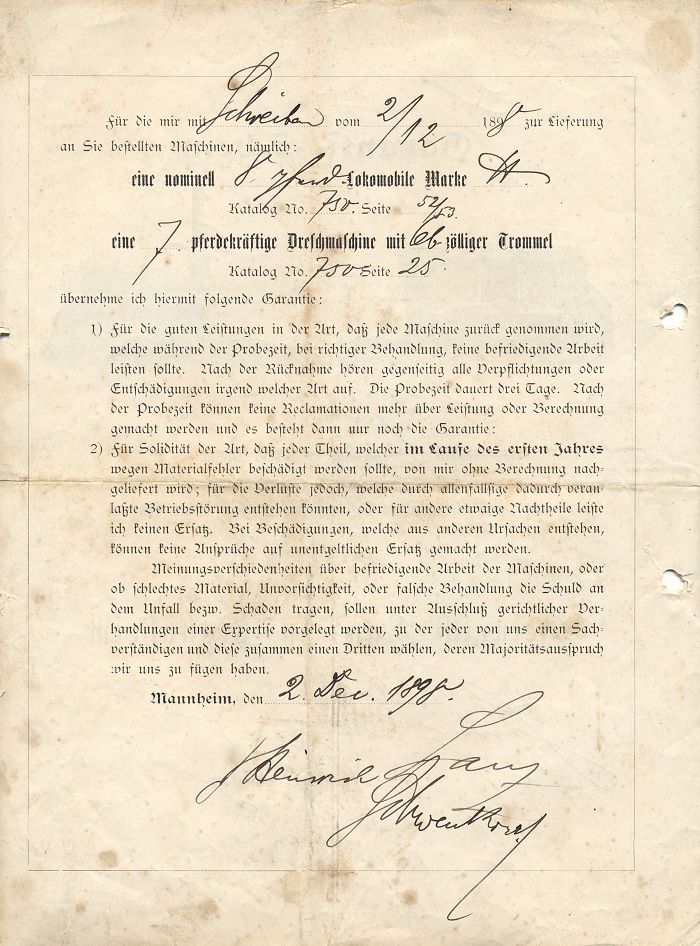 Für die mir mit Schreiben vom 2/12 1898 zur Lieferung
an Sie bestellten Maschinen, nämlich:
eine nominell 8 pferd. Lokomobile Marke H
Katalog No. 750. Seite 52/53.
eine 7 pferdekräftige Dreschmaschine mit zölliger Trommel
Katalog No. 750 Seite 25.
übernehme ich hiermit folgende Garantie:
1) Für die guten Leistungen in der Art, daß jede Maschine zurück genommen wird,
welche während der Probezeit, bei richtiger Behandlung, keine befriedigende Arbeit
leisten sollte. Nach der Rücknahme hören gegenseitig alle Verpflichtungen oder
Entschädigungen irgend welcher Art auf. Die Probezeit dauert drei Tage. Nach
der Probezeit können keine Reclamationen mehr über Leistung oder Berechnung
gemacht werden und es besteht dann nur noch die Garantie:
2) Für Solidität der Art, daß jeder Theil, welcher im Laufe des ersten Jahres
wegen Materialfehler beschädigt werden sollte, von mir ohne Berechnung nach-
geliefert wird; für die Verluste jedoch, welche durch allenfallsige dadurch veran-
laßte Betriebsstörung entstehen könnten, oder für andere etwaige Nachtheile leiste
ich keinen Ersatz. Bei Beschädigungen, welche aus anderen Ursachen entstehen,
können keine Ansprüche auf unentgeltlichen Ersatz gemacht werden.
Meinungsverschiedenheiten über befriedigende Arbeit der Maschinen, oder
ob schlechtes Material, Unvorsichtigkeit, oder falsche Behandlung die Schuld an
dem Unfall bezw. Schaden tragen, sollen unter Ausschluß gerichtlicher Ver-
handlungen einer Expertise vorgelegt werden, zu der jeder von uns einen Sach-
verständigen und diese zusammen einen Dritten wählen, deren Majoritätsausspruch
wir uns zu fügen haben.
Mannheim, den 2. Dec. 1898.
Heinrich Lanz